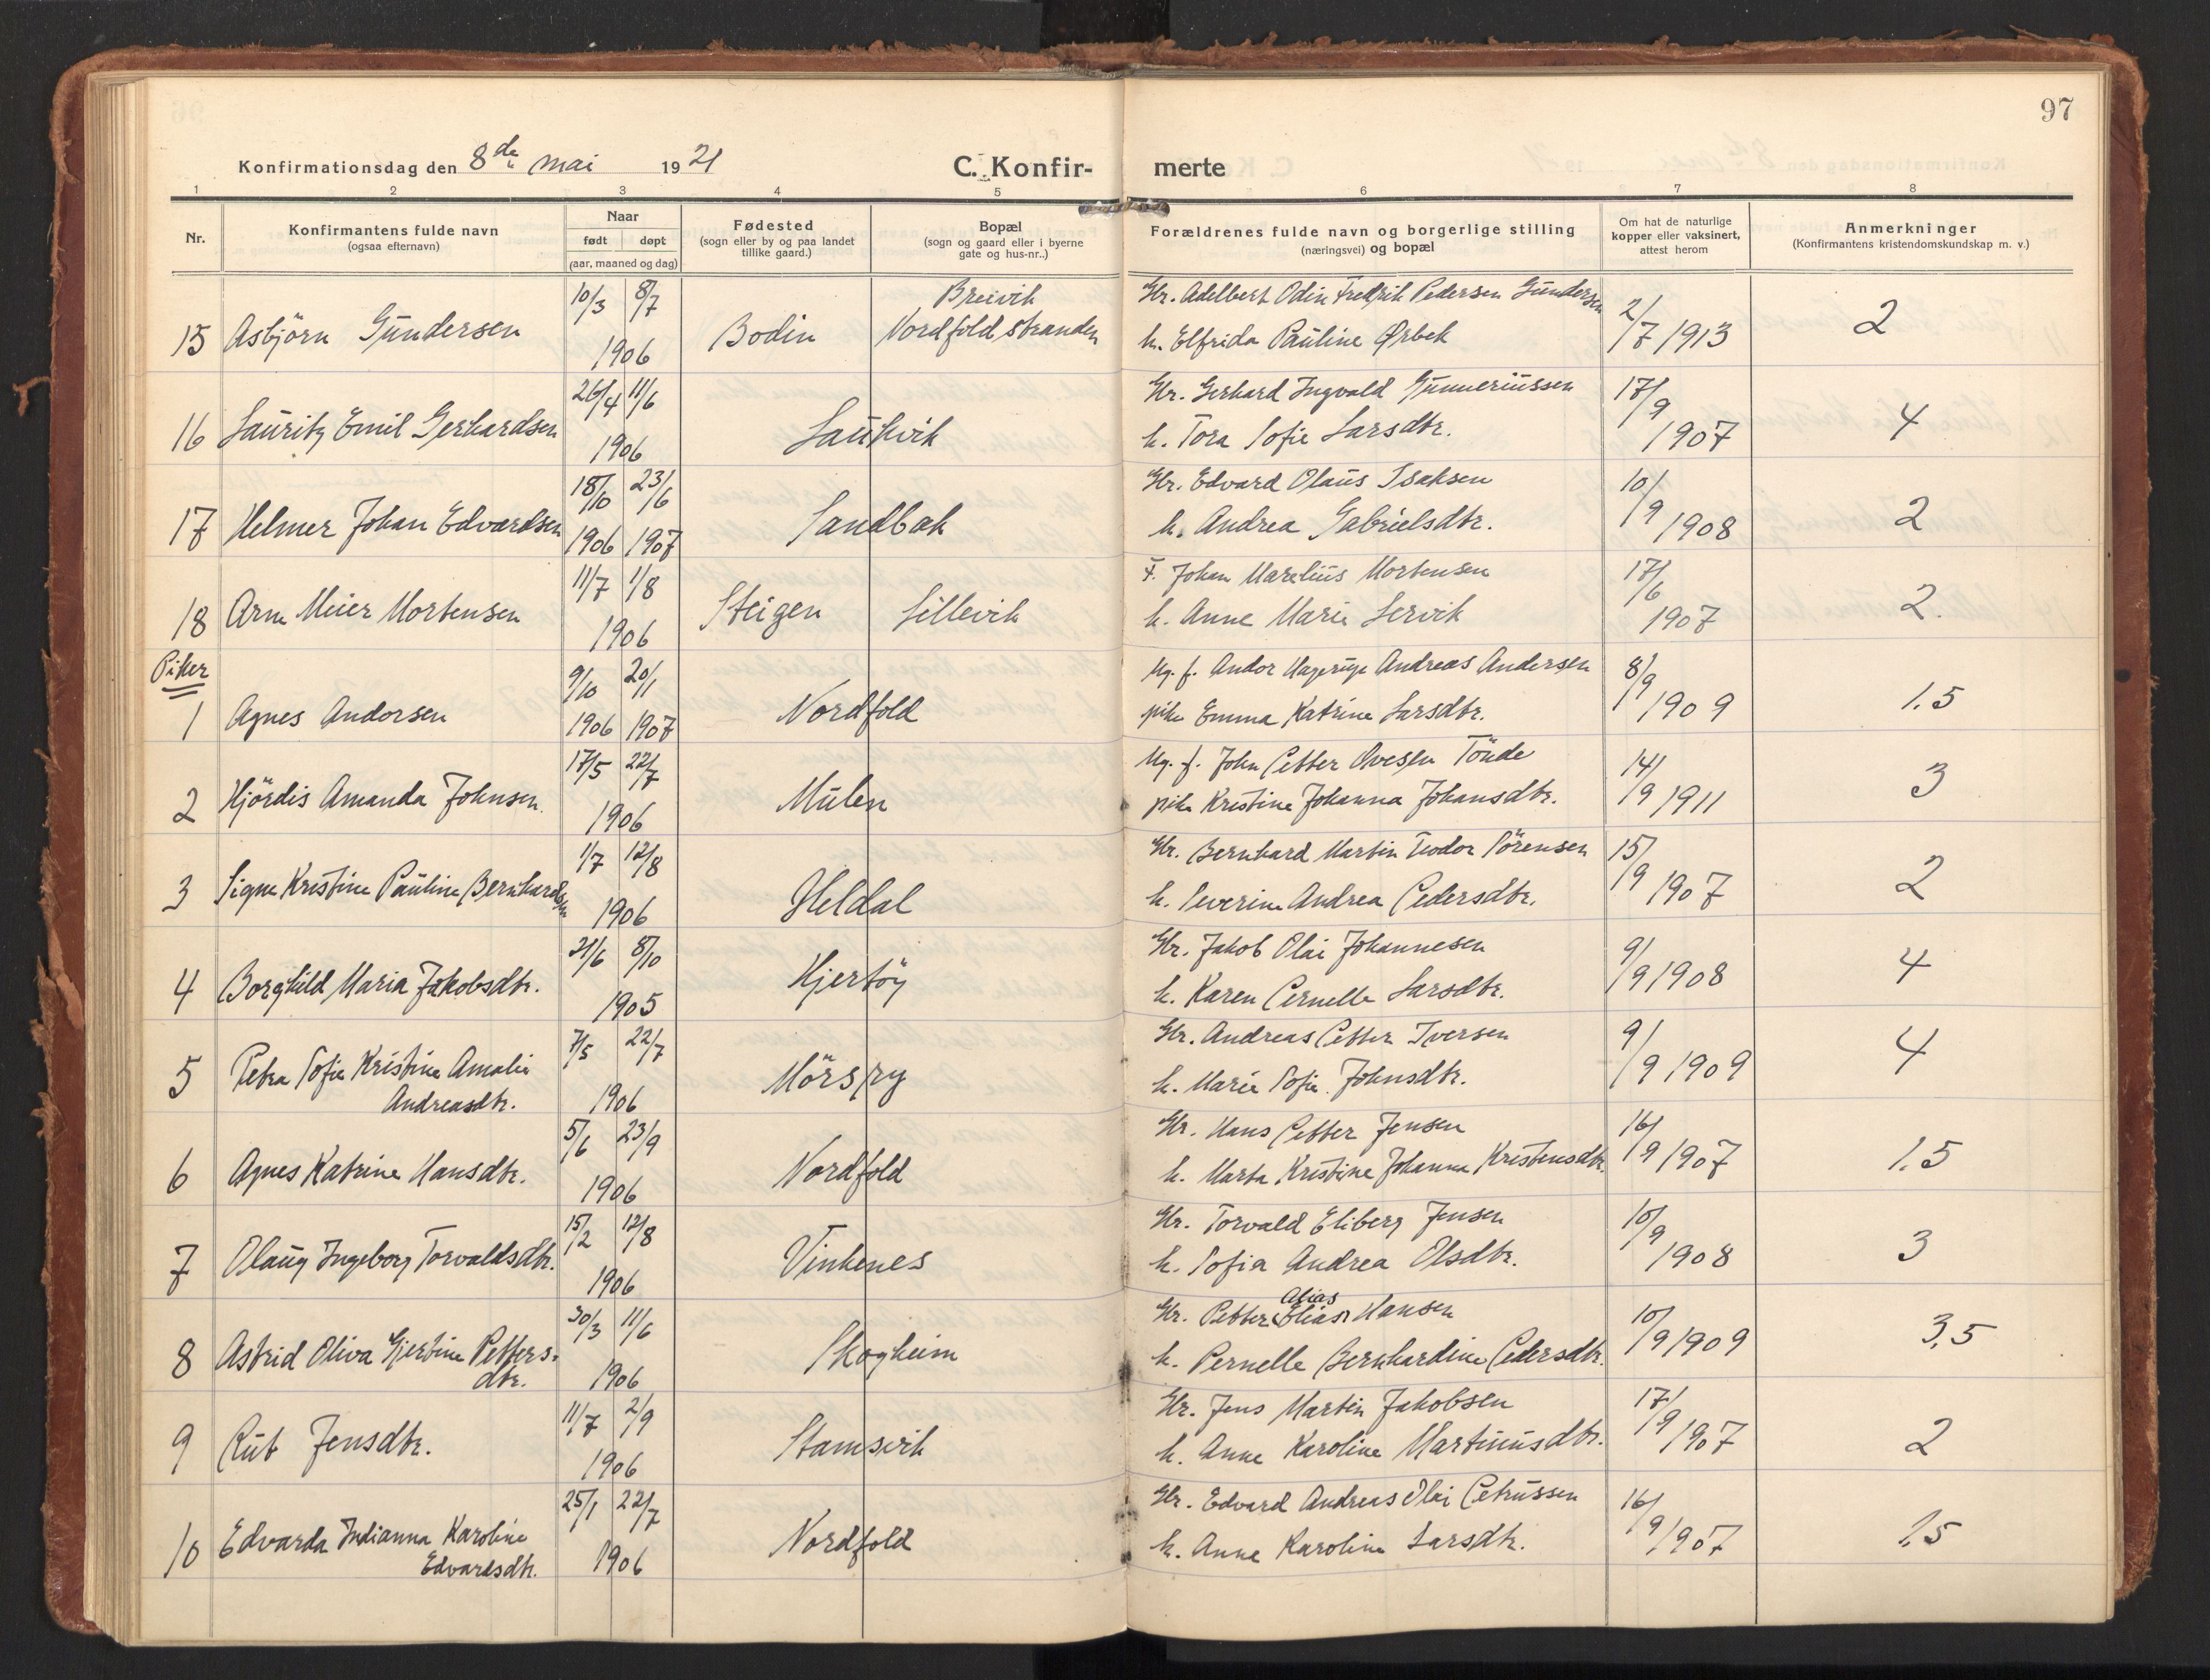 97
Konfirmationsdag den 8de mai 1921
C. Konfir- merte
1 2 3 4 5 6 7 8
Nr.
Konfirmantens fulde navn
(ogsaa efternavn)
Naar
født døpt
(aar, maaned og dag)
Fødested
(sogn eller by og paa landet
tillike gaard.)
Bopæl
(sogn og gaard eller i byerne
gate og hus-nr..)
Forældrenes fulde navn og borgerlige stilling
(næringsvei) og bopæl
Om hat de naturlige
kopper eller vaksinert,
attest herom
Anmerkninger
(Konfirmantens kristendomskundskap m. v.)
10/3 8/7 Breivik Gr. Adelbert Odin Fredrik Pedersen Gundersen
15 Asbjörn Gundersen 1906 Bodin Nordfoldstranden h. Elfrida Pauline Ørbek 2/7 1913 2
26/4 11/6 Gr. Gerhard Ingvald Gunneriussen
16 Lauritz Emil Gerhardsen 1906 Laukvik h. Tora Sofie Larsdtr. 17/9 1907 4
18/10 23/6 Gr. Edvard Olaus Isaksen
17 Helmer Johan Edvardsen 1906 1907 Sandbak h. Andrea Gabrielsdtr. 10/9 1908 2
11/7 1/8 F. Johan Marelius Mortensen
18 Arne Meier Mortensen 1906 Steigen Lillevik h. Anne Marie Servik 17/6 1907 2.
Piker
9/10 20/1 Ug. f. Andor Hagerup Andreas Andersen
1 Agnes Andorsen 1906 1907 Nordfold pike Emma Katrine Larsdtr. 8/9 1909 1.5
17/5 22/7 Ug. f. John Petter Ovesen Tönde
2 Hjördis Amanda Johnsen. 1906 Mulen pike Kristine Johanna Johansdtr. 14/9 1911 3
1/7 12/8 Gr. Bernhard Martin Teodor Sörensen
3 Signe Kristine Pauline Bernhardsen 1906 Heldal h. Severine Andrea Pedersdtr. 15/9 1907 2
21/6 8/10 Gr. Jakob Olai Johannesen
4 Borghild Maria Jakobsdtr. 1905 Hjertöy h. Karen Pernelle Larsdtr. 9/9 1908 4
7/5 22/7 Gr. Andreas Petter Iversen
5 Petra Sofie Kristine Amalie
Andreasdtr. 1906 Mörsry h. Marie Sofie Johnsdtr. 9/9 1909 4
5/6 23/9 Gr. Hans Petter Jensen
6 Agnes Katrine Hansdtr. 1906 Nordfold h. Marta Kristine Johanna Kristensdtr. 16/9 1907 1.5
15/2 12/8 Gr. Torvald Eliberg Jensen
7 Olaug Ingeborg Torvaldsdtr. 1906 Vinkenes h. Sofia Andrea Olsdtr. 10/9 1908 3
Alias
30/3 11/6 Gr. Petter (Elias) Hansen
8 Astrid Oliva Gjertine Petters-
dtr. 1906 Skogheim h. Pernelle Bernhardine Pedersdtr. 10/9 1909 3,5
11/7 2/9 Gr. Jens Martin Jakobsen
9 Rut Jensdtr. 1906 Stamsvik h. Anne Karoline Martinusdtr. 17/9 1907 2
25/1 22/7 Gr. Edvard Andreas Olai Petrussen
10 Edvarda Indianna Karoline
Edvardsdtr. 1906 Nordfold h. Anna Karoline Larsdtr. 16/9 1907 1.5